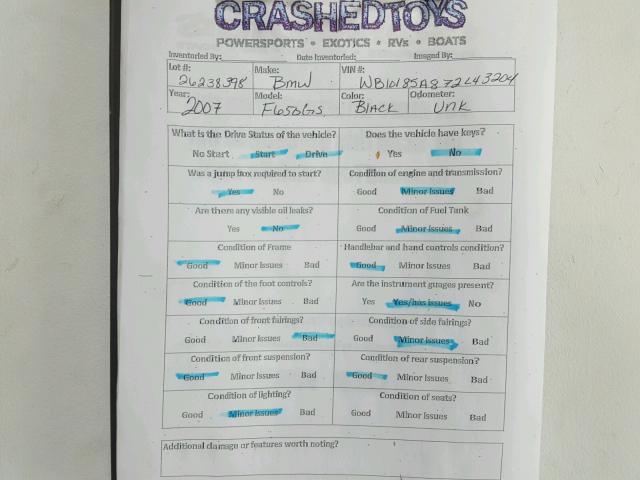 CRASHEDTOYS
POWERSPORTS • EXOTICS • RVs • BOATS
Inventoried By: Date Inventoried: Imaged By:
Lot #: 26238398 Make: BMW VIN #: WB10185A872L43204
Year: 2007 Model: F650GS Color: BLACK Odometer: UNK
What is the Drive Status of the vehicle? Does the vehicle have keys?
No Start Start Drive Yes No
Was a jump box required to start? Condition of engine and transmission?
Yes No Good Minor Issues Bad
Are there any visible oil leaks? Condition of Fuel Tank
Yes No Good Minor Issues Bad
Condition of Frame Handlebar and hand controls condition?
Good Minor Issues Bad Good Minor Issues Bad
Condition of the foot controls? Are the instrument guages present?
Good Minor Issues Bad Yes Yes/has issues No
Condition of front fairings? Condition of side fairings?
Good Minor Issues Bad Good Minor Issues Bad
Condition of front suspension? Condition of rear suspension?
Good Minor Issues Bad Good Minor Issues Bad
Condition of lighting? Condition of seats?
Good Minor Issues Bad Good Minor Issues Bad
Additional damage or features worth noting?